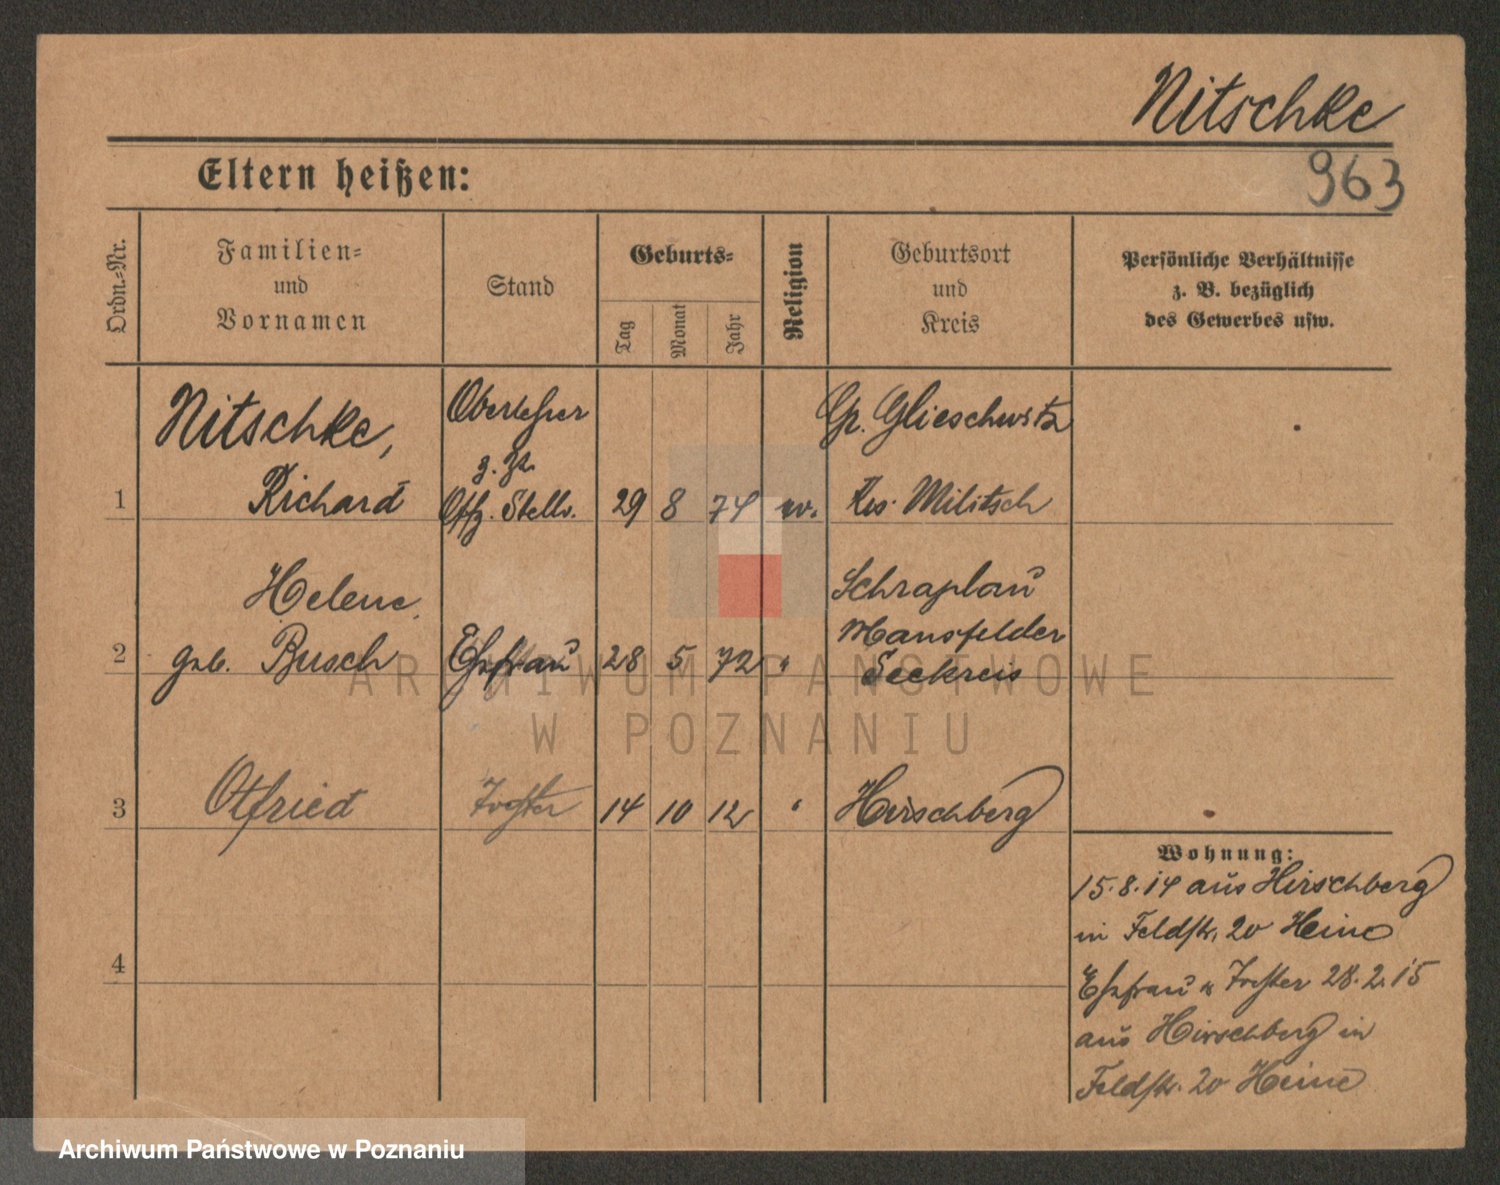 Nitschke
963
Eltern heißen:
Ordn.-Nr.
Familien-
und
Vornamen
Stand
Geburts-
Tag
Monat
Jahr
Religion
Geburtsort
und
Kreis
Persönliche Verhältnisse
z. B. bezüglich
des Gewerbes usw.
1
Nitschke,
Richard
Oberlehrer
z. Zt.
Offz. Stellv.
29 8 74 ev.
Gr. Glieschwitz
Krs. Militsch
2
Helene
geb. Busch
Ehefrau
28 5 72 "
Schraplau
Mansfelder
Seekreis
3
Otfried
Tochter
14 10 12 "
Hirschberg
4
Wohnung:
15.8.14 aus Hirschberg
in Feldstr. 20 Heine
Ehefrau u Tochter 28.2.15
aus Hirschberg in
Feldstr. 20 Heine
ARCHIWUM PAŃSTWOWE
W POZNANIU
Archiwum Państwowe w Poznaniu